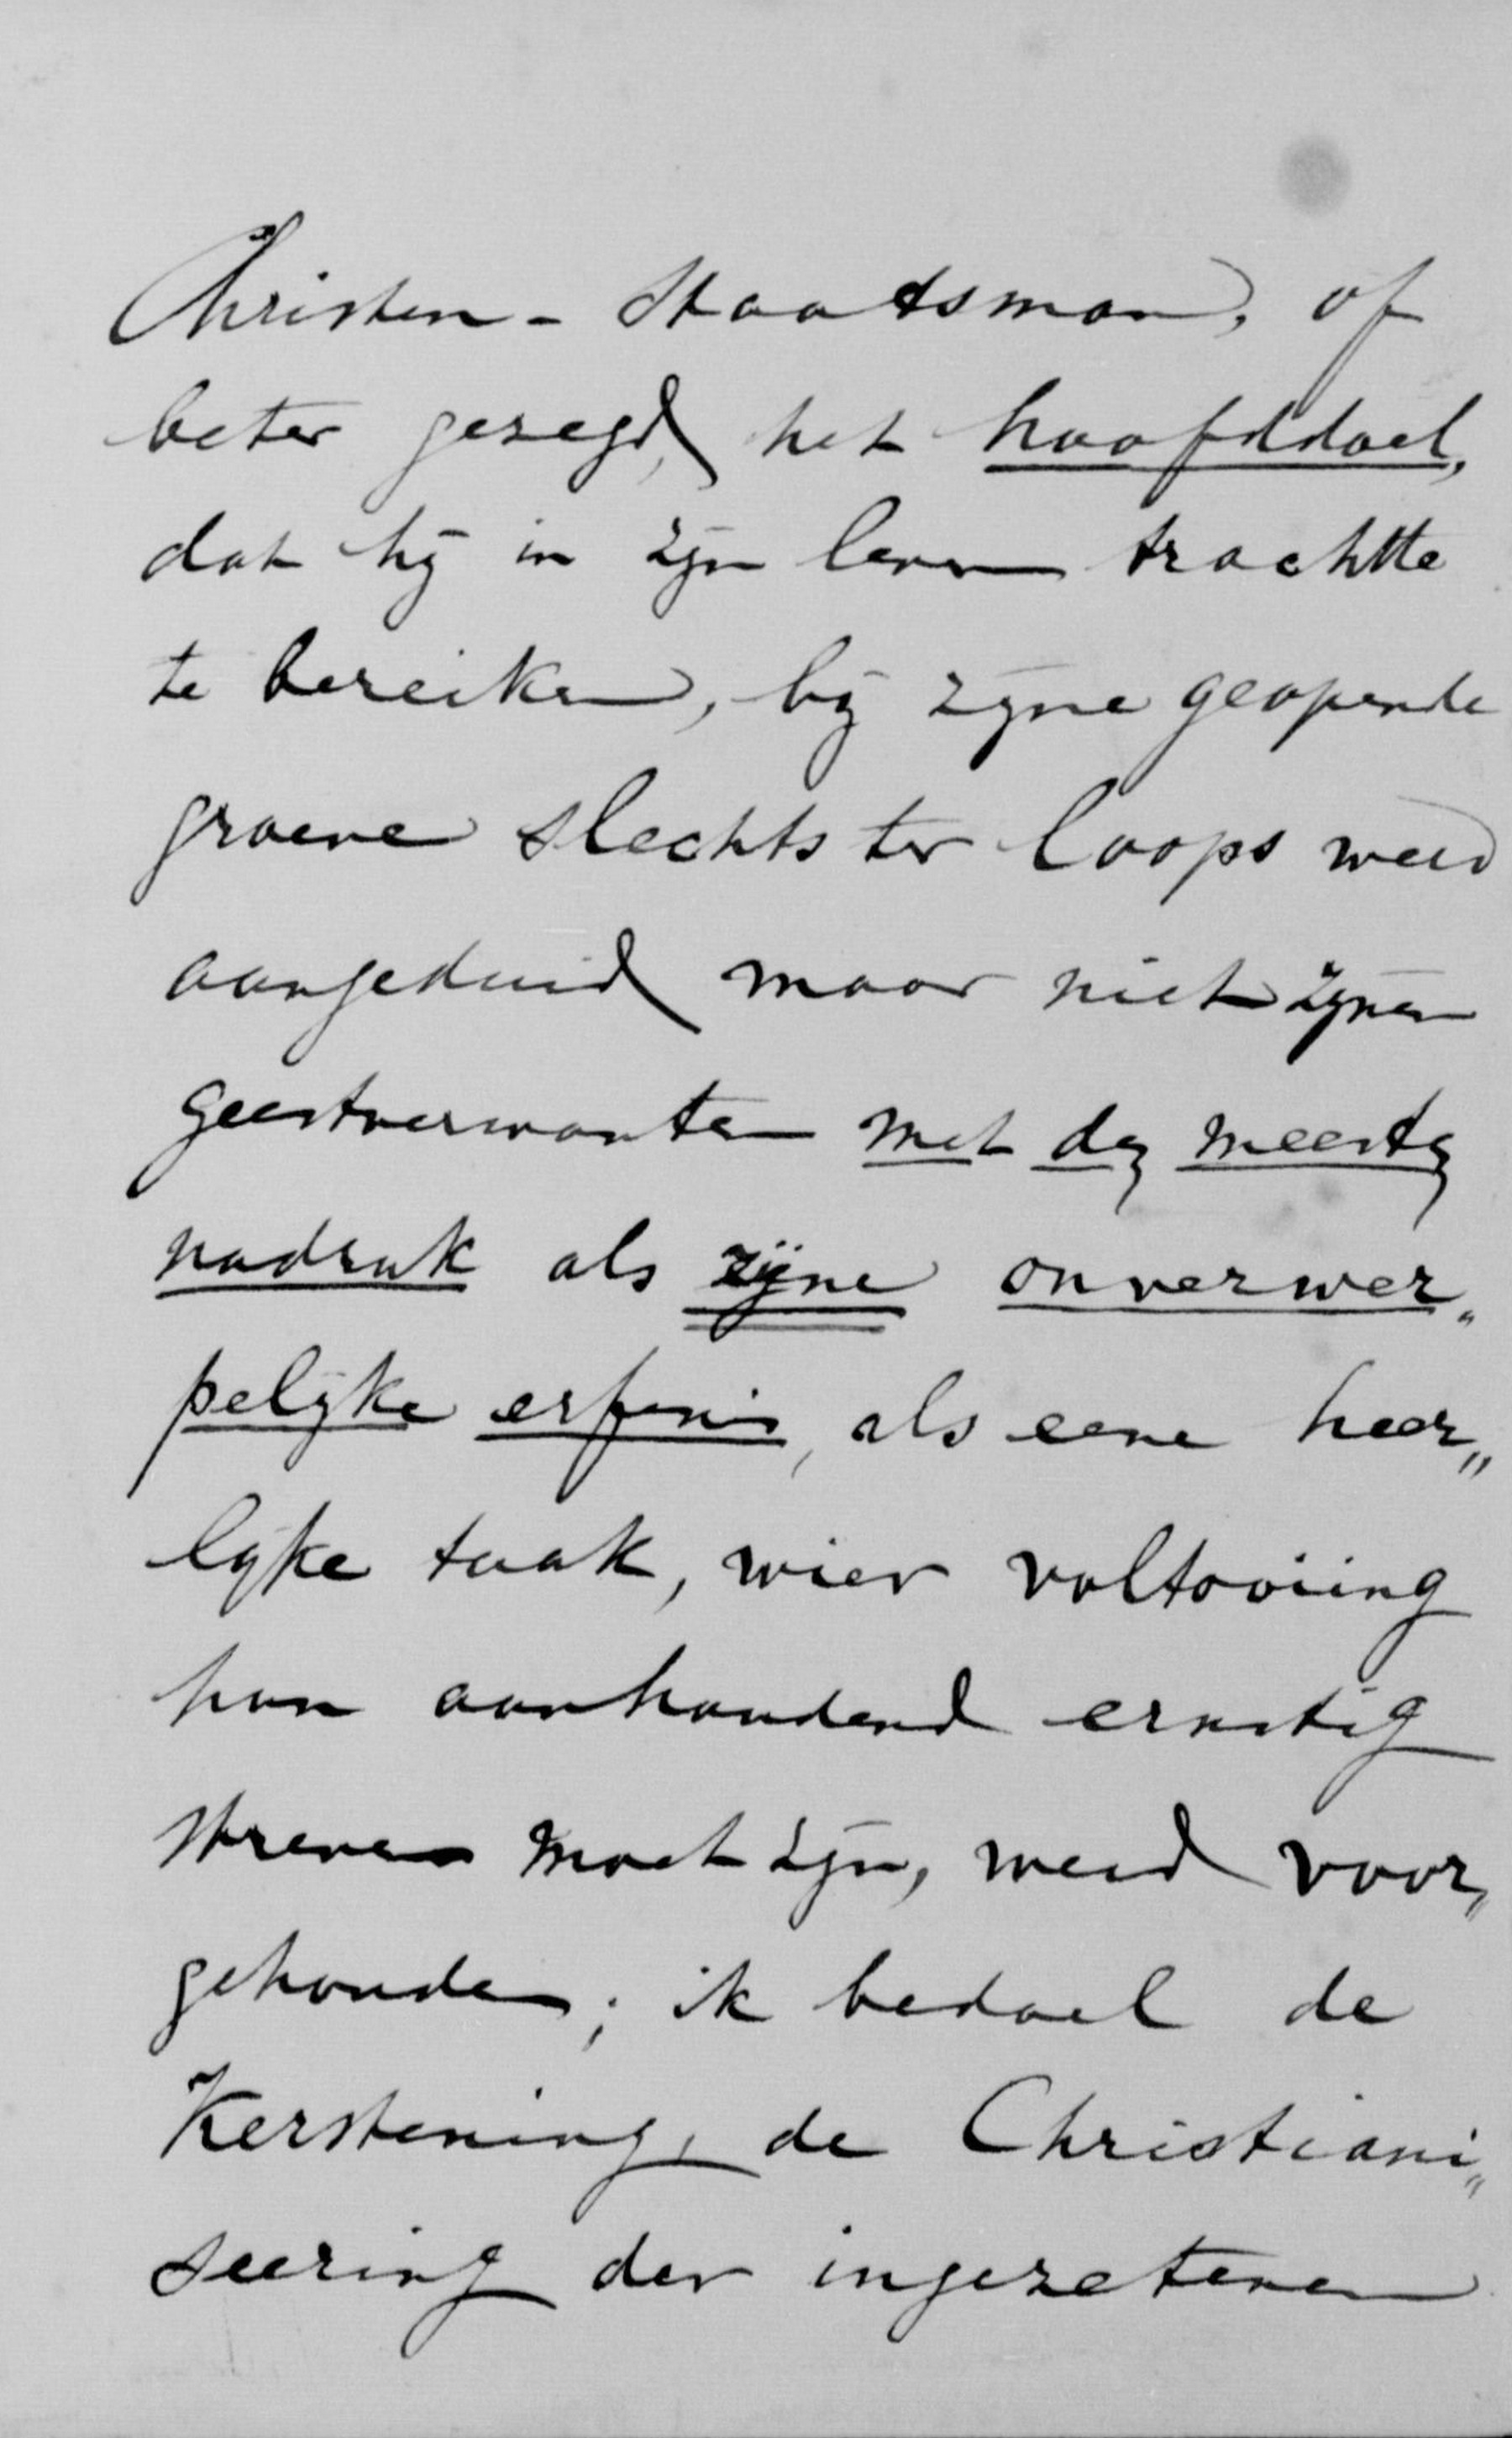 Christen - Staatsman, of
beter gezegd, het hoofddoel,
dat hij in zijn leven trachtte
te bereiken, bij zijne geopende
groeve slechts ter loops werd
aangeduid maar niet zijnen
geestverwanten met den meesten
nadruk als zijne onverwer„
pelijke erfenis, als eene heer„
lijke taak, wier voltooiing
hun aanhoudend ernstig
streven moet zijn, werd voor„
gehouden; ik bedoel de
Kerstening, de Christiani„
seering der ingezetenen